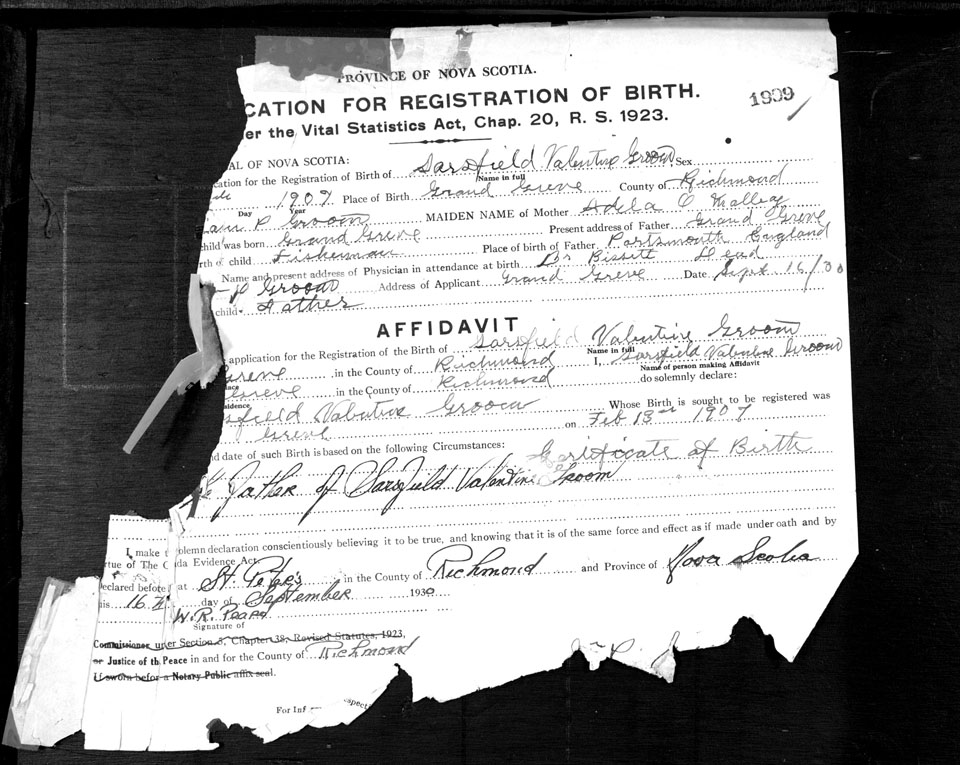 PROVINCE OF NOVA SCOTIA.
CATION FOR REGISTRATION OF BIRTH.
1909
er the Vital Statistics Act, Chap. 20, R. S. 1923.
AL OF NOVA SCOTIA:
cation for the Registration of Birth of Sarsfield Valentine Groom Sex
Name in full
1907 Place of Birth Grand Greve County of Richmond
Day Year
P Groom MAIDEN NAME of Mother Adela C Malley
child was born Grand Greve Present address of Father Grand Greve
rth of child Fisherman Place of birth of Father Portsmouth England
Name and present address of Physician in attendance at birth Dr Bissett Dead
P Groom Address of Applicant Grand Greve Date Sept 16/30
child. Father
AFFIDAVIT
application for the Registration of the Birth of Sarsfield Valentine Groom
Name in full
Greve in the County of Richmond I, Sarsfield Valentine Groom
lace Name of person making Affidavit
Greve in the County of Richmond do solemnly declare:
sidence
sfield Valentine Groom Whose Birth is sought to be registered was
Greve on Feb 13 1907
nd date of such Birth is based on the following Circumstances: Certificate of Birth
Father of Sarsfield Valentine Groom
I make t olemn declaration conscientiously believing it to be true, and knowing that it is of the same force and effect as if made under oath and by
rtue of The C da Evidence Act.
Declared before at St. Peter's in the County of Richmond and Province of Nova Scotia
his 16 th day of September 1930
W. R. Peard
Signature of
Commissioner under Section 8, Chapter 38, Revised Statutes, 1923,
or Justice of th Peace in and for the County of Richmond
If sworn befor a Notary Public affix seal.
For Inf spect